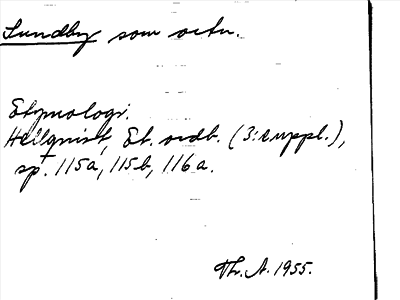 Lundby som ortn.
Etymologi.
Hellqvist, Et. ordb. (3:e uppl.),
sp. 115a, 115b, 116a.
Th. A. 1955.